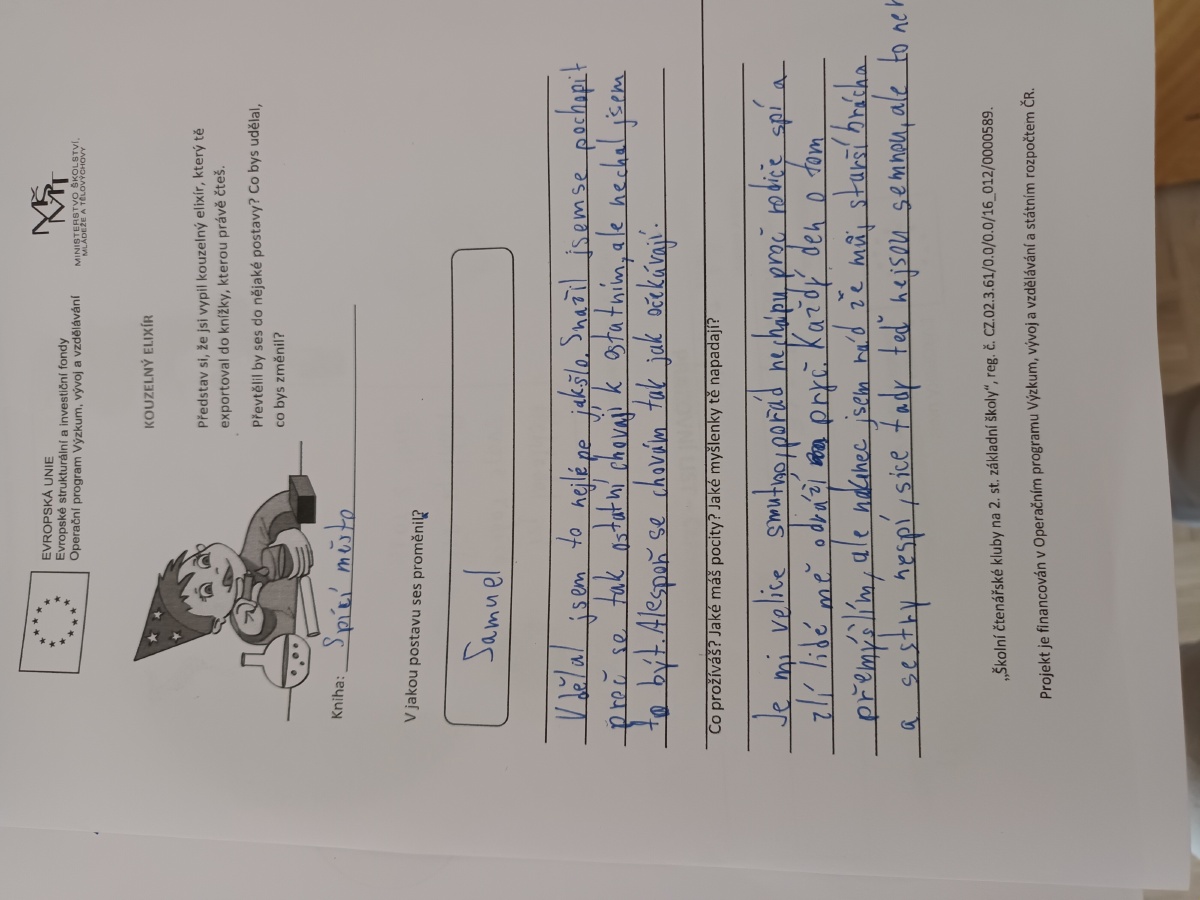 EVROPSKÁ UNIE
Evropské strukturální a investiční fondy
Operační program Výzkum, vývoj a vzdělávání
MŠMT
MINISTERSTVO ŠKOLSTVÍ,
MLÁDEŽE A TĚLOVÝCHOVY
KOUZELNÝ ELIXÍR
Představ si, že jsi vypil kouzelný elixír, který tě
exportoval do knížky, kterou právě čteš.
Převtělil by ses do nějaké postavy? Co bys udělal,
co bys změnil?
Kniha: Spící město
V jakou postavu ses proměnil?
Samuel
Vdělal jsem to nejlépe jakšlo. Snažil jsemse pochopit
proč se tak ostatní chovají k ostatním, ale nechal jsem
to být. Alespoň se chovám tak jak očekávají.
Co prožíváš? Jaké máš pocity? Jaké myšlenky tě napadají?
Je mi velice smutno, pořád nechápu proč rodiče spí a
zlí lidé mě odráží pryč. Každý den o tom
přemýšlím, ale nakonec jsem rád že můj starší brácha
a sestry nespí, sice tady teď nejsou semnou, ale to
„Školní čtenářské kluby na 2. st. základní školy", reg. č. CZ.02.3.61/0.0/0.0/16_012/0000589.
Projekt je financován v Operačním programu Výzkum, vývoj a vzdělávání a státním rozpočtem ČR.